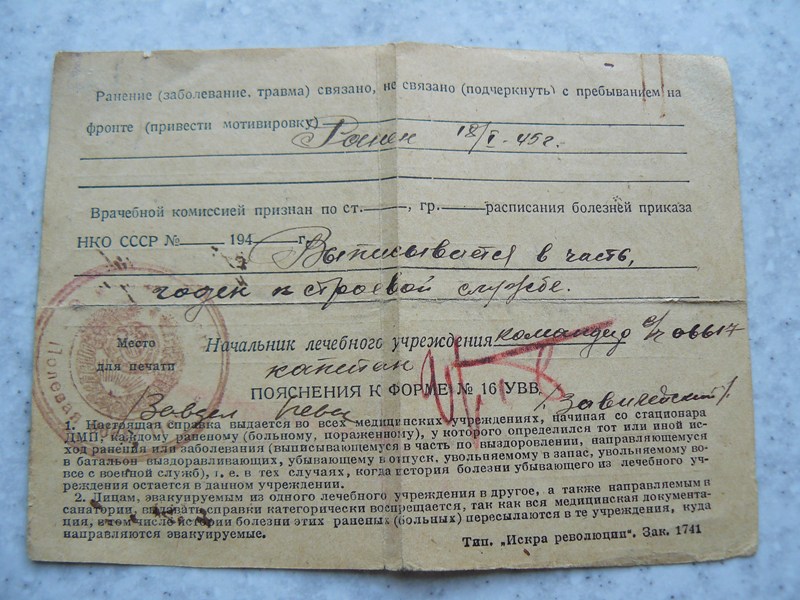 Ранение (заболевание, травма) связано, не связано (подчеркнуть) с пребыванием на
фронте (привести мотивировку)
Ранен 18/I-45г.
Врачебной комиссией признан по ст. —, гр. — расписания болезней приказа
НКО СССР № — 194 — г. Выписывается в часть,
годен к строевой службе.
Место
для печати
Начальник лечебного учреждения командир
капитан
ПОЯСНЕНИЯ К ФОРМЕ № 16 УВВ.
1. Настоящая справка выдается во всех медицинских учреждениях, начиная со стационара
ДМП, каждому раненому (больному, пораженному), у которого определился тот или иной ис-
ход ранения или заболевания (выписывающемуся в часть по выздоровлении, направляющемуся
в батальон выздоравливающих, убывающему в отпуск, увольняемому в запас, увольняемому во-
все с военной служб), т. е. в тех случаях, когда история болезни убывающего из лечебного уч-
реждения остается в данном учреждении.
2. Лицам, эвакуируемым из одного лечебного учреждения в другое, а также направляемым в
санатории, выдавать справки категорически воспрещается, так как вся медицинская документа-
ция, в том числе истории болезни этих раненых (больных) пересылаются в те учреждения, куда
направляются эвакуируемые.
Тип. „Искра революции". Зак. 1741